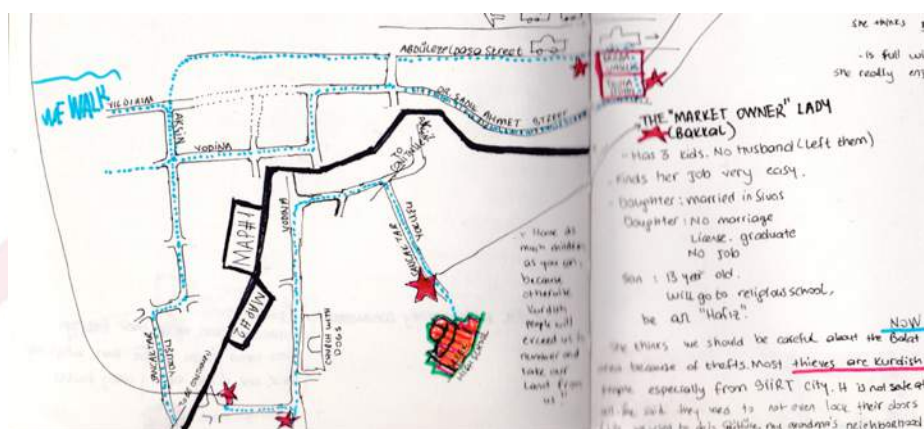 ABDÜLEZELPAŞA Street
WE WALK
YILDIRIM
AKÇİN
VODİNA
DR. SADIK AHMET STREET
TO BE CONTINUED
VODİNA
MAP#1
MAP#2
SANCAKTAR YOKUŞU
HIGH SCHOOL
CHURCH WITH DOGS
SANCAKTAR
YOKUŞU
TO BE CONTINUED
" Have as
much children
as you can,
because
otherwise
Kurdish
people will
exceed us in
number and
take our
land from
us."
she thinks
- is full
she really
THE "MARKET OWNER" LADY
(Bakkal)
- Has 3 kids. No husband (left them)
- Finds her job very easy.
- Daughter: married in Sivas
Daughter: No marriage
License. graduate
No job
Son: 13 year old.
will go to religious school,
be an "Hafız".
NOW
She thinks we should be careful about the Balat
area because of thefts. Most thieves are Kurdish
people especially from SİİRT CITY. It is not safe at
all. She said they used to not even lock their doors
my grandma's neighborhood